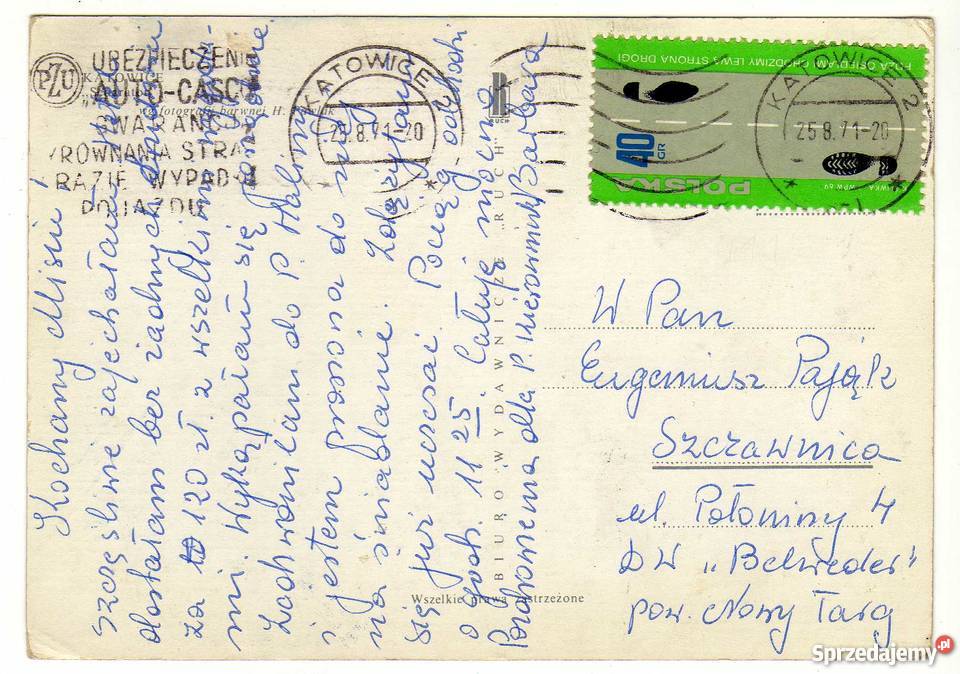 PZU
UBEZPIECZENIE
"AUTO-CASCO"
GWARANCJĄ
WYRÓWNANIA STRAT
RAZIE WYPADKU
POJAZDU
KATOWICE
wg fotografii barwnej H.
KATOWICE 2
25.8.71-20
RUCH
KATOWICE 2
25.8.71-20
POZA OSIEDLAMI CHODZIMY LEWĄ STRONĄ DROGI
40 GR
POLSKA
PWPW 69
Kochany Misiu!
Szczęśliwie zajechałam,
dostałam bez żadnych
za 120 zł. z wszelkimi
mi. Wykąpałam się
Zadzwoniłam do P. Haliny
i jestem proszona do niej
na śniadanie. Zdążyłam
się już uczesać. Pociąg odchodzi
o godz. 11 25. Całuję mocno
Pozdrowienia dla P. Kierownika Barbara
BIURO WYDAWNICZE „RUCH"
Wszelkie prawa zastrzeżone
W Pan
Eugeniusz Pająk
Szczawnica
ul. Połoniny 4
DW „Belweder"
pow. Nowy Targ
Sprzedajemy.pl